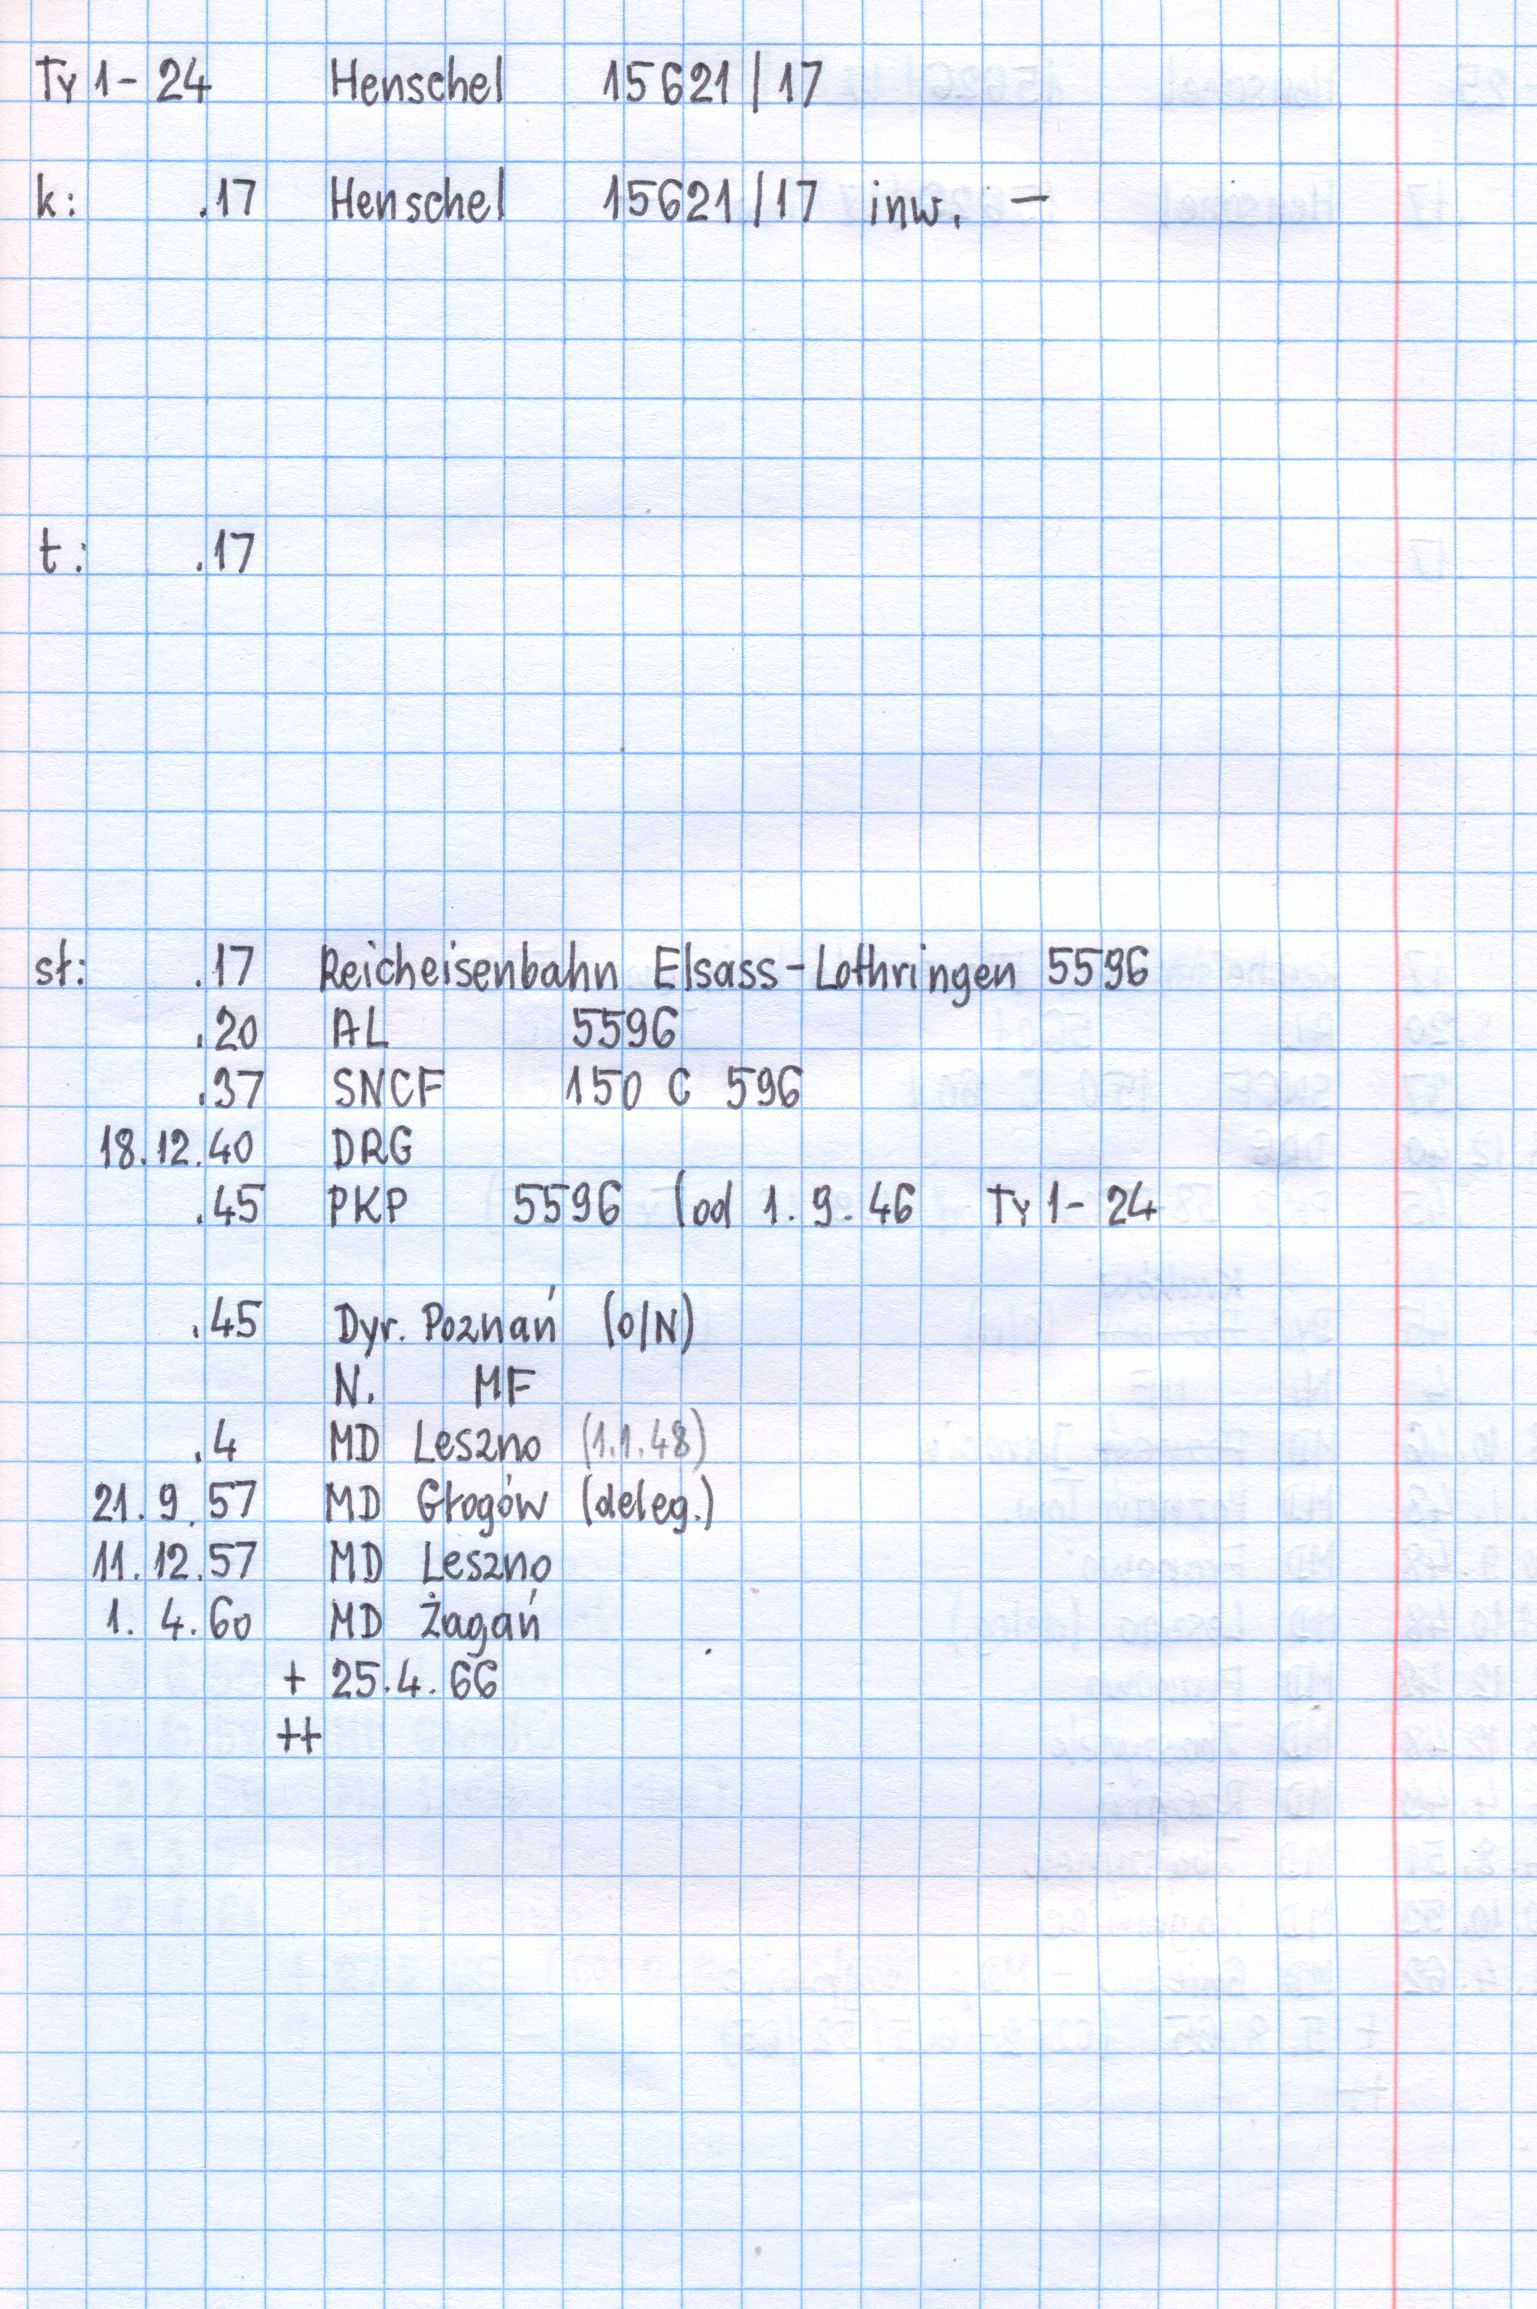 Ty 1 - 24 Henschel 15621 / 17
k: .17 Henschel 15621 / 17 inw. —
t: .17
st: .17 Reicheisenbahn Elsass - Lothringen 5596
.20 AL 5596
.37 SNCF 150 C 596
18.12.40 DRG
.45 PKP 5596 (od 1. 9. 46 Ty 1 - 24
.45 Dyr. Poznań (O/N)
N. MF
.4 MD Leszno (1.1.48)
21. 9. 57 MD Głogów (deleg.)
11. 12. 57 MD Leszno
1. 4. 60 MD Żagań
+ 25. 4. 66
++